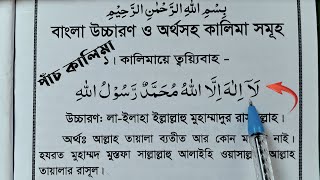 بِسْمِ اللهِ الرَّحْمٰنِ الرَّحِيْمِ
বাংলা উচ্চারণ ও অর্থসহ কালিমা সমূহ
পাঁচ কালিমা
১। কালিমায়ে ত্বয়্যিবাহ -
لَآ اِلٰهَ اِلَّا اللهُ مُحَمَّدٌ رَّسُوْلُ اللهِ
উচ্চারণঃ লা-ইলাহা ইল্লাল্লাহু মুহাম্মাদুর
অর্থঃ আল্লাহ তায়ালা ব্যতীত আর কোন নাই।
হযরত মুহাম্মদ মুস্তফা সাল্লাল্লাহু আলাইহি ওয়াসাল্লাম আল্লাহ
তায়ালার রাসূল।